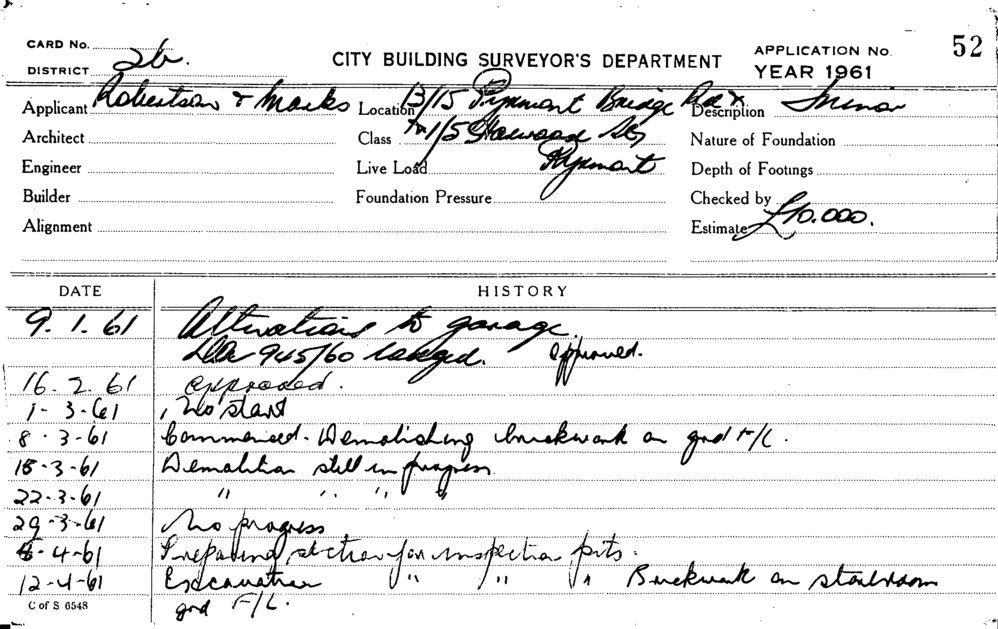 CARD No. 2b. CITY BUILDING SURVEYOR'S DEPARTMENT APPLICATION No. 52
DISTRICT YEAR 1961
Applicant Robertson & Marks Location 13/15 Pyrmont Bridge Rd & Description Minor
Architect Class to 1/5 Harwood St, Nature of Foundation
Engineer Live Load Pyrmont Depth of Footings
Builder Foundation Pressure Checked by
Alignment Estimate £10.000.
DATE HISTORY
9. 1. 61 Alterations to garage.
DA 945/60 lodged. approved.
16. 2. 61 approved.
1- 3-61 No start
8. 3-61 Commenced. Demolishing brickwork on grd F/L.
15-3-61 Demolition still in progress
22-3-61 " " " "
29-3-61 No progress
5-4-61 Preparing section for inspection pits.
12-4-61 Excavation " " " Brickwork on storeroom
C of S 6548 grd F/L.